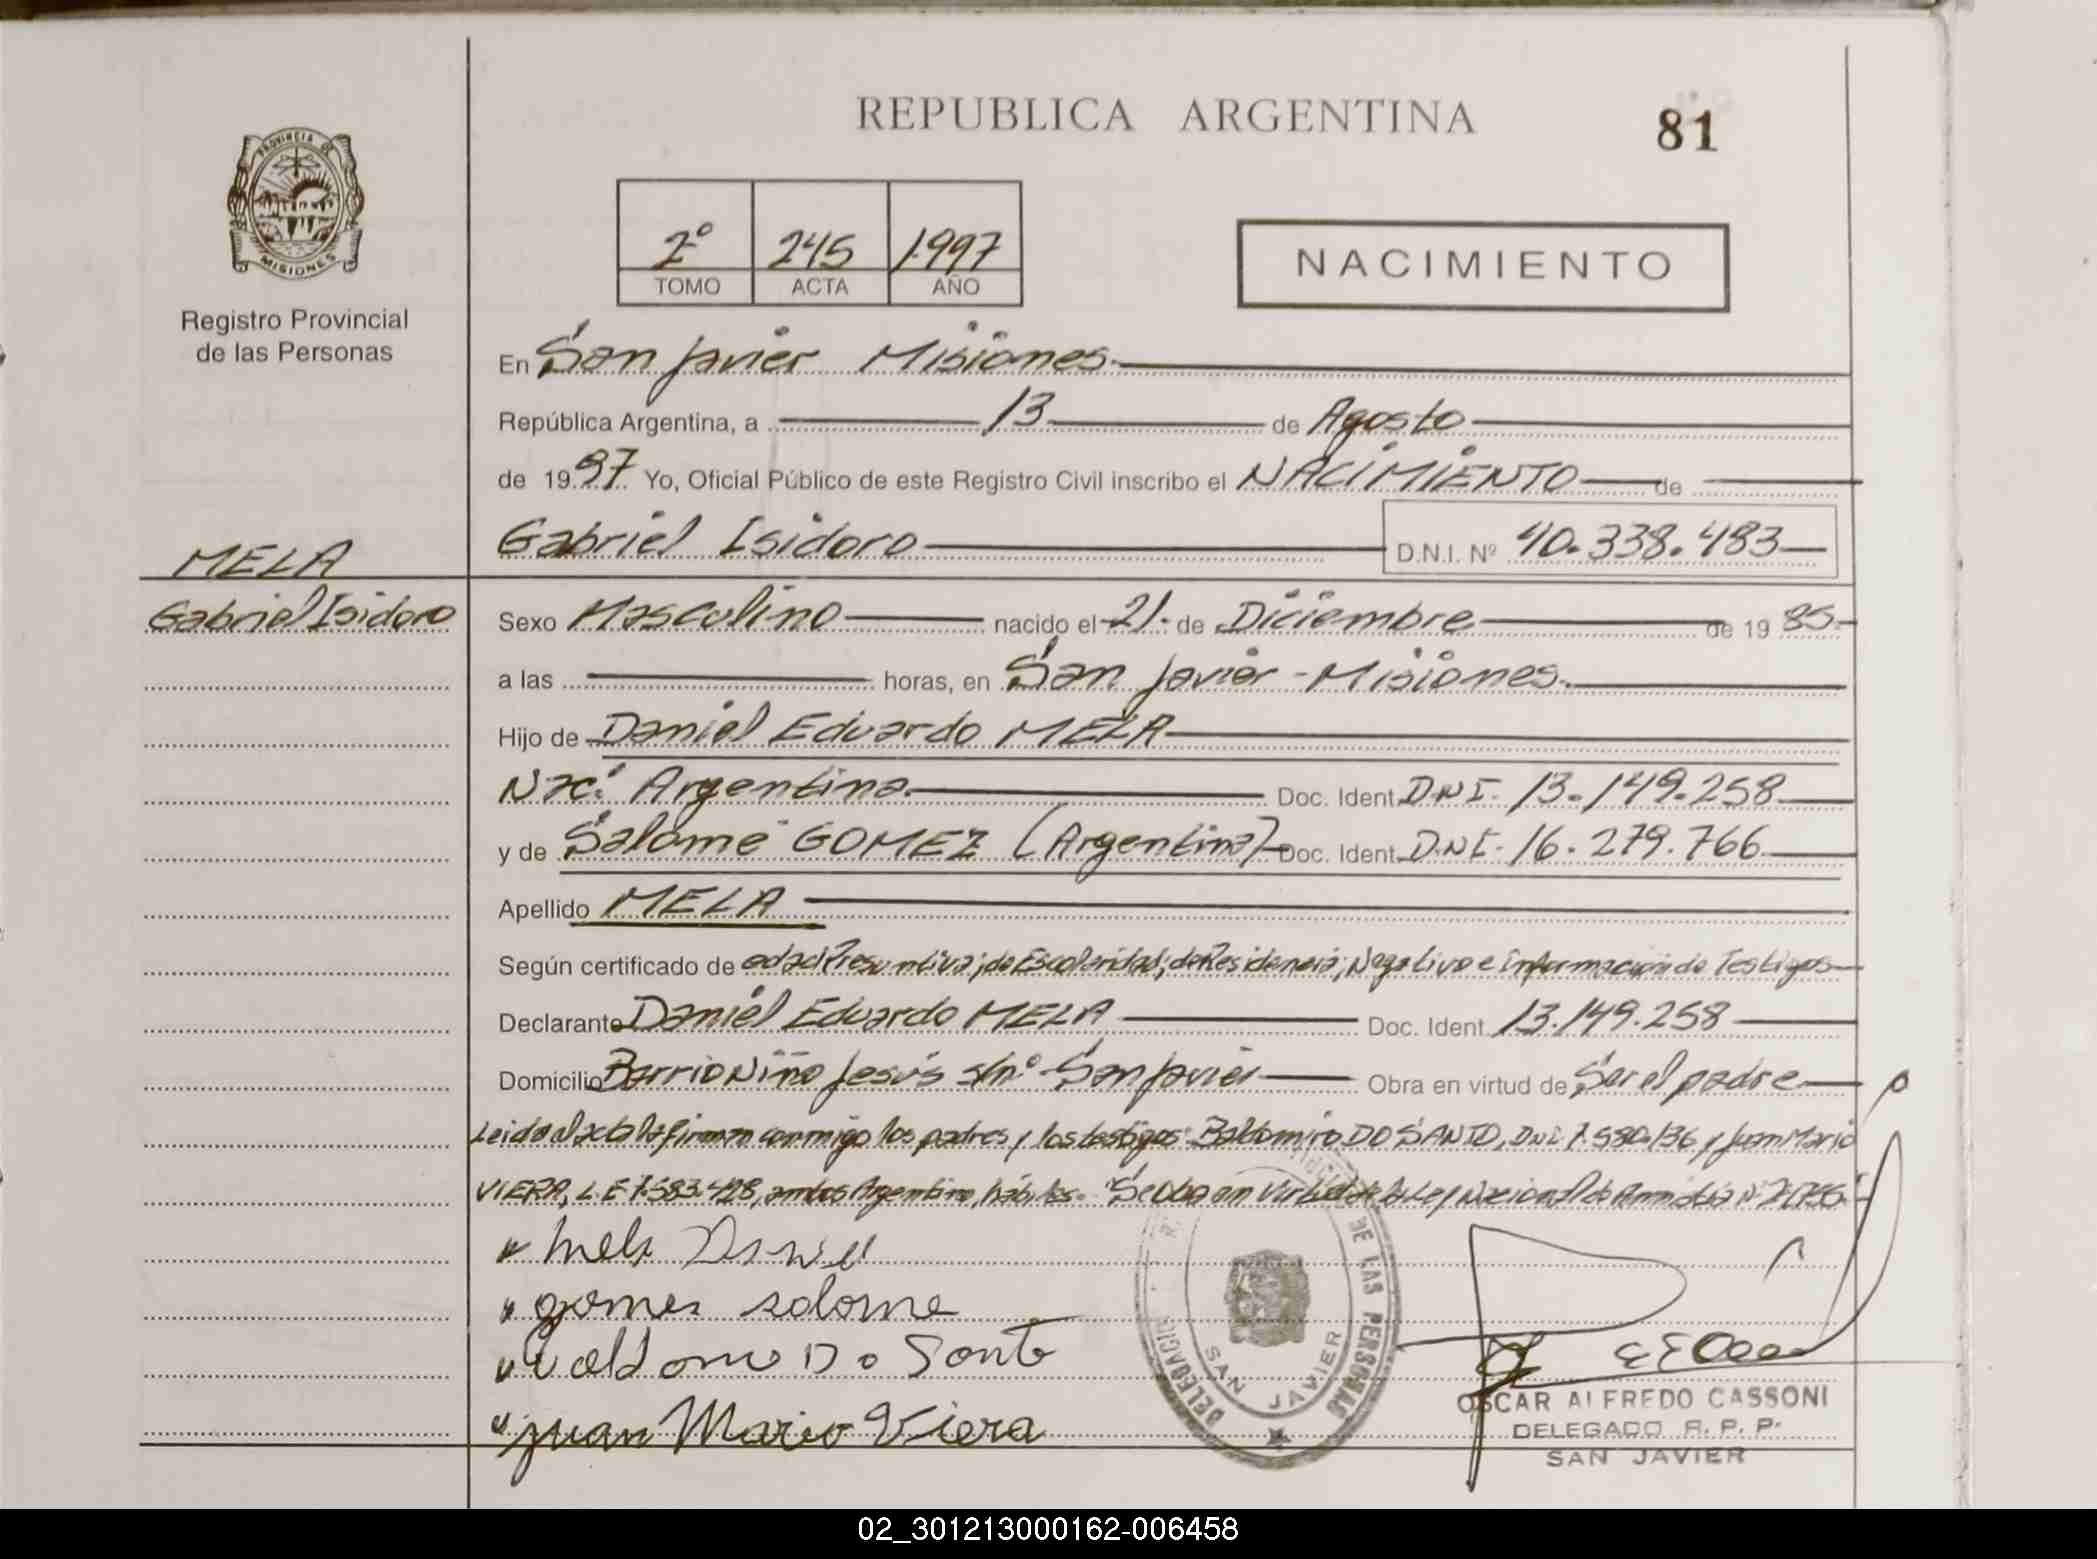 REPUBLICA ARGENTINA
81
PROVINCIA DE
MISIONES
Registro Provincial
de las Personas
2º 245 1997
TOMO ACTA AÑO
NACIMIENTO
En San Javier Misiones
República Argentina, a 13 de Agosto
de 1997 Yo, Oficial Público de este Registro Civil inscribo el NACIMIENTO de
Gabriel Isidoro D.N.I. Nº 40.338.483
MELA
Gabriel Isidoro
Sexo Masculino nacido el 21 de Diciembre de 19 85
a las horas, en San Javier - Misiones
Hijo de Daniel Eduardo MELA
Nac. Argentina Doc. Ident. DNI. 13.149.258
y de Salomé GOMEZ (Argentina) Doc. Ident. DNI. 16.279.766
Apellido MELA
Según certificado de edad Presuntiva; de Escolaridad; de Residencia; Negativo e Información de Testigos
Declarante Daniel Eduardo MELA Doc. Ident. 13.149.258
Domicilio Barrio Niño Jesús s/nº San Javier Obra en virtud de Ser el padre
Leida el acta la firman conmigo los padres y los testigos: Baldomiro DO SANTO, DNI 7.580.136 y Juan Mario
VIERA, L.E 7.583.428, ambos Argentino, hábiles. Se Obra en Virtud de la Ley Nacional de Amnistia Nº
Mela Daniel
gomez salome
Valdomo Do Santo
juan Mario Viera
DELEGACION
DE LAS PERSONAS
SAN JAVIER
OSCAR ALFREDO CASSONI
DELEGADO R. P. P.
SAN JAVIER
02_301213000162-006458